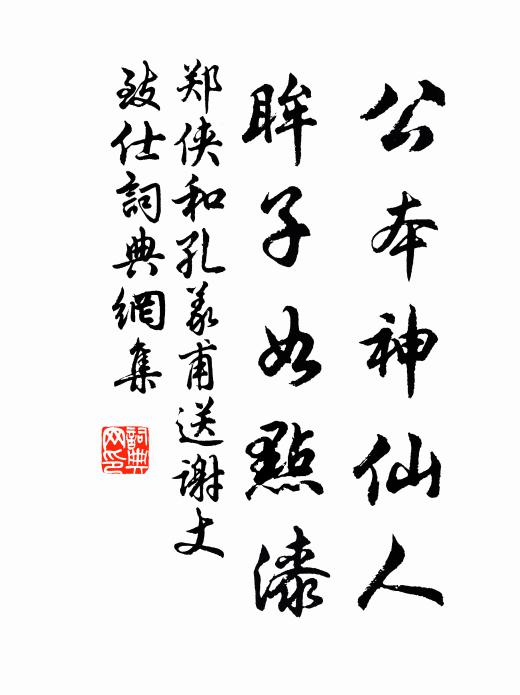 公本神仙人
眸子如點漆
郑侠和孔义甫送谢丈
致仕詞典網集
詞典网印